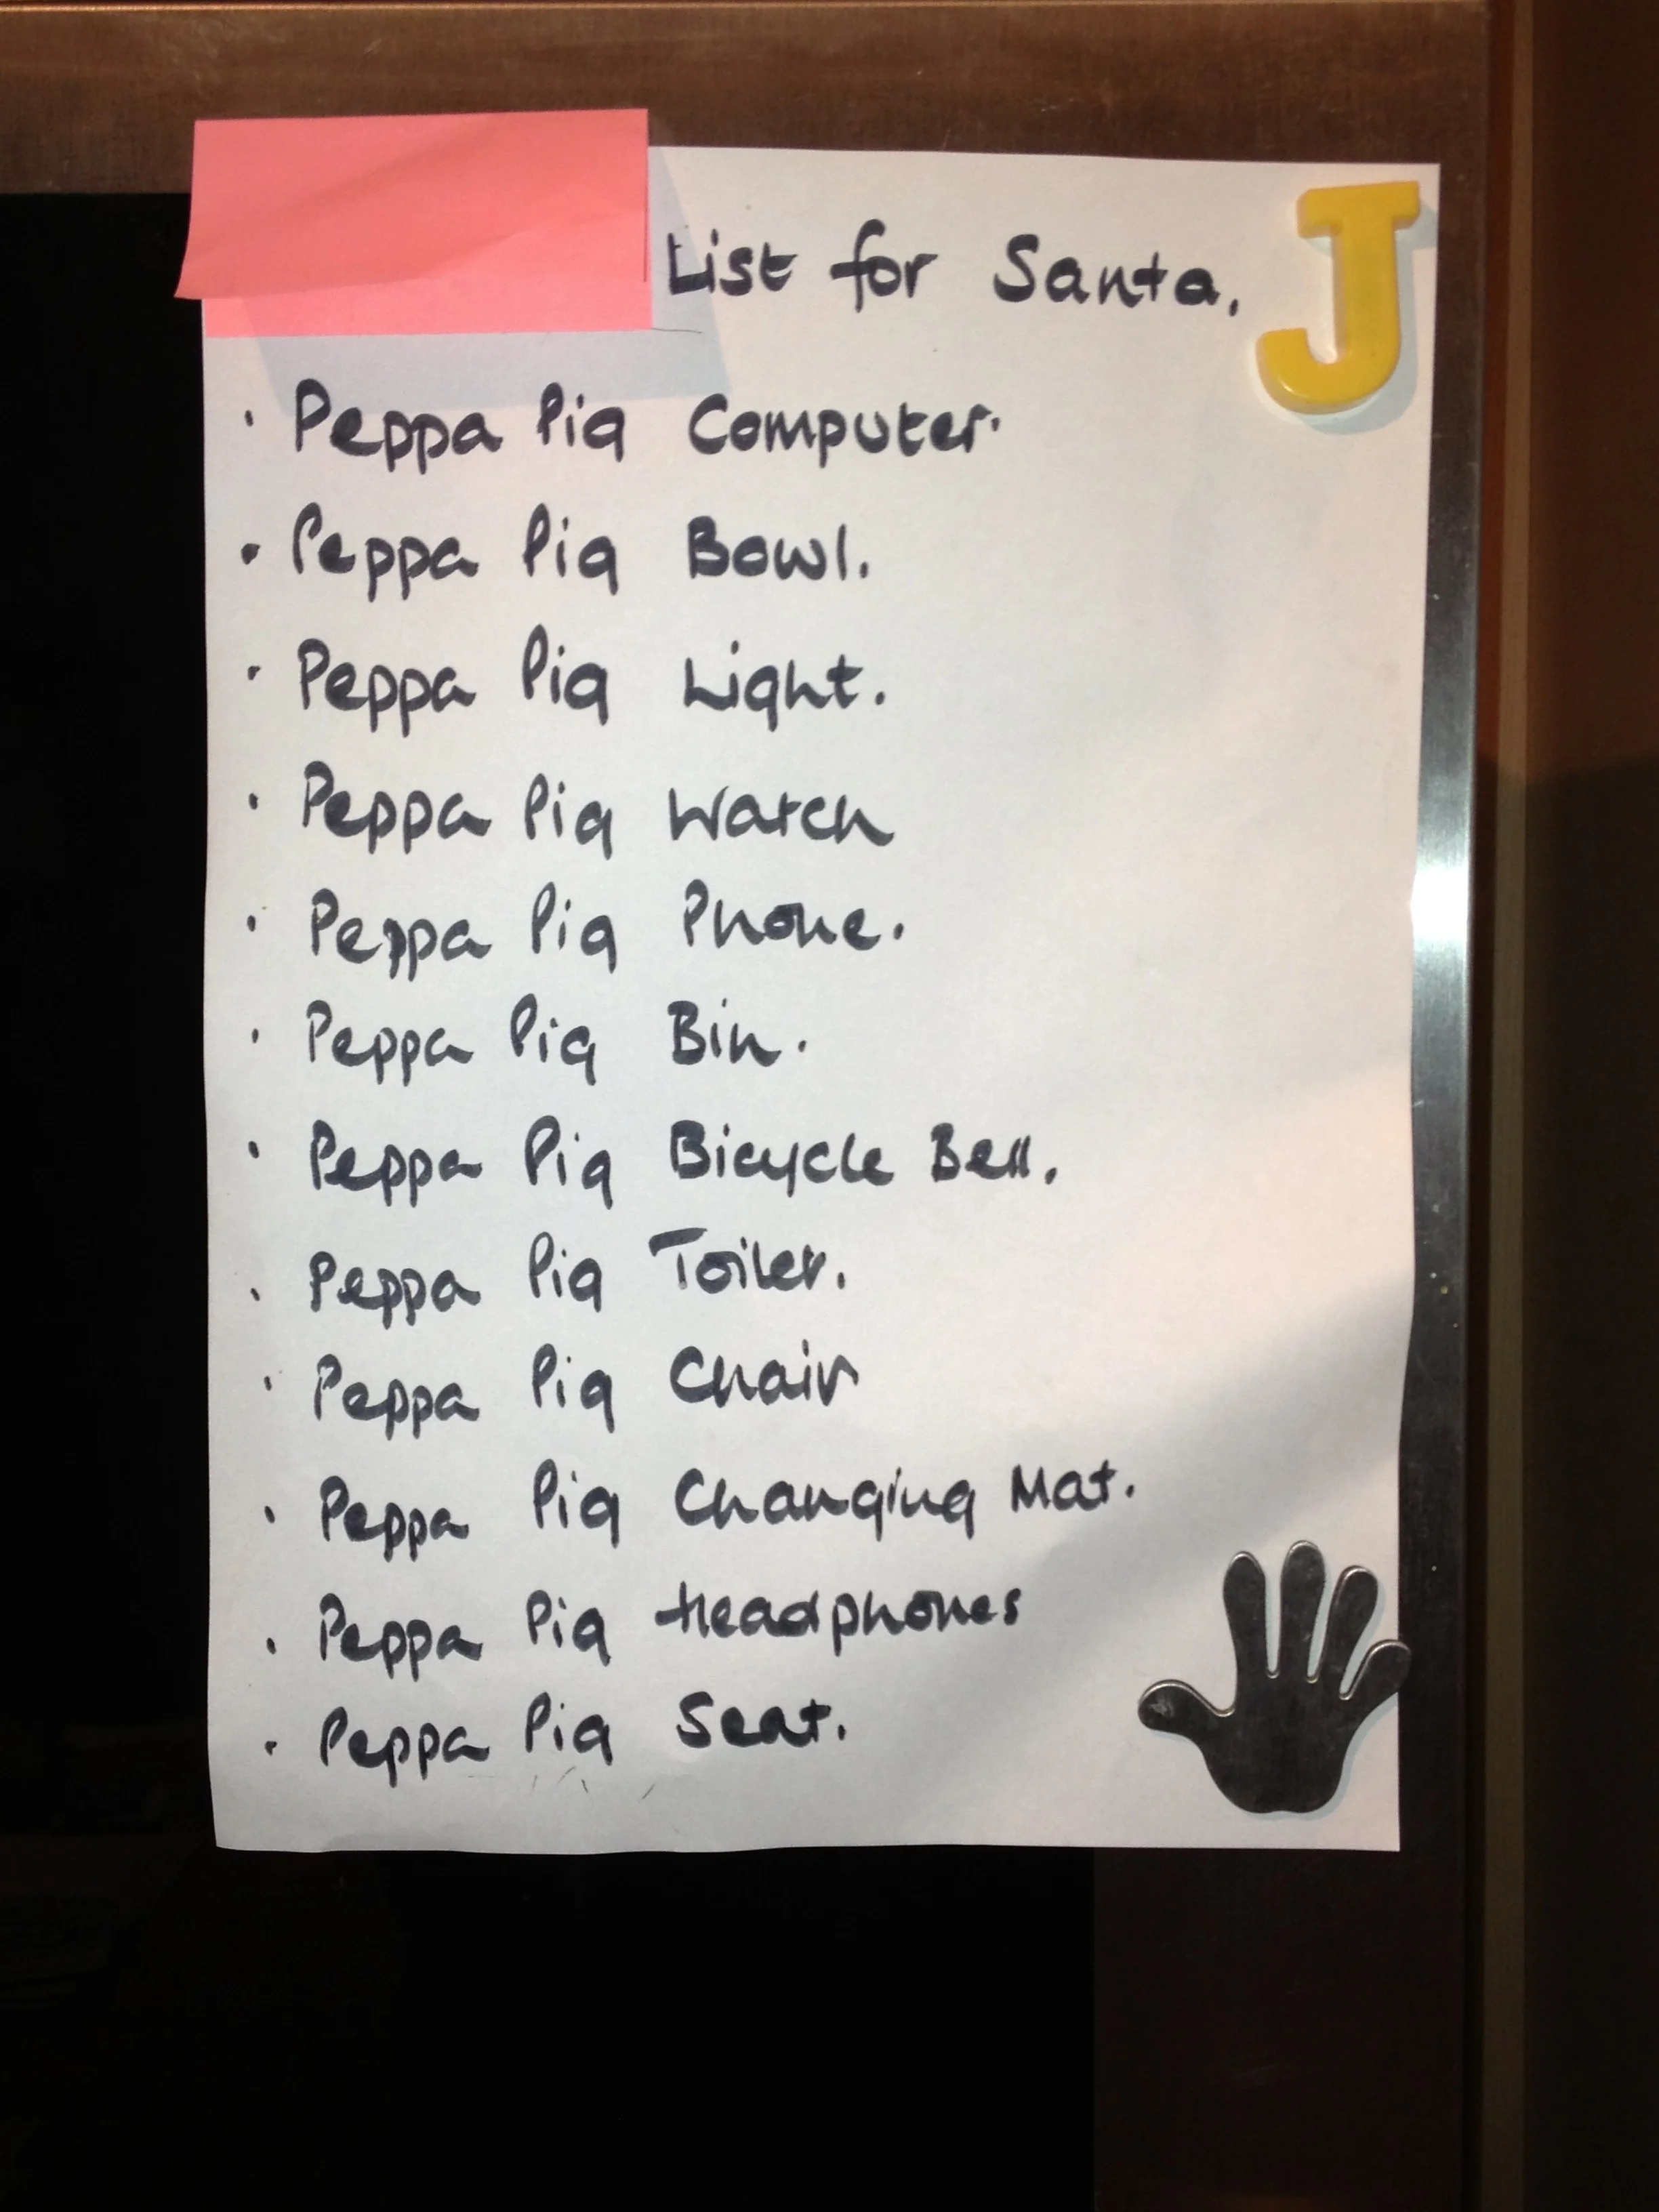 List for Santa.
J
· Peppa Pig Computer.
· Peppa Pig Bowl.
· Peppa Pig Light.
· Peppa Pig Watch
· Peppa Pig Phone.
· Peppa Pig Bin.
· Peppa Pig Bicycle Bell.
· Peppa Pig Toilet.
· Peppa Pig Chair
· Peppa Pig Changing Mat.
· Peppa Pig Headphones
· Peppa Pig Seat.